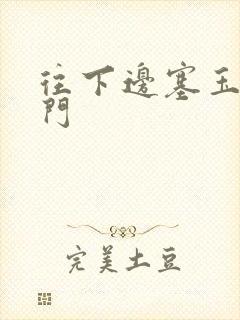 往下邊塞玉
門
完美土豆